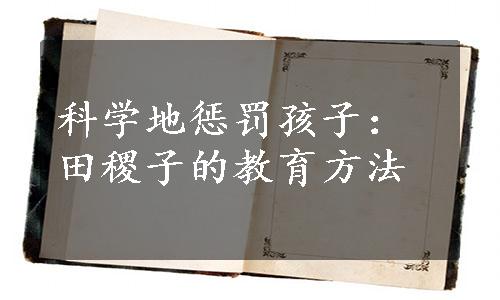 科学地惩罚孩子：
田稷子的教育方法